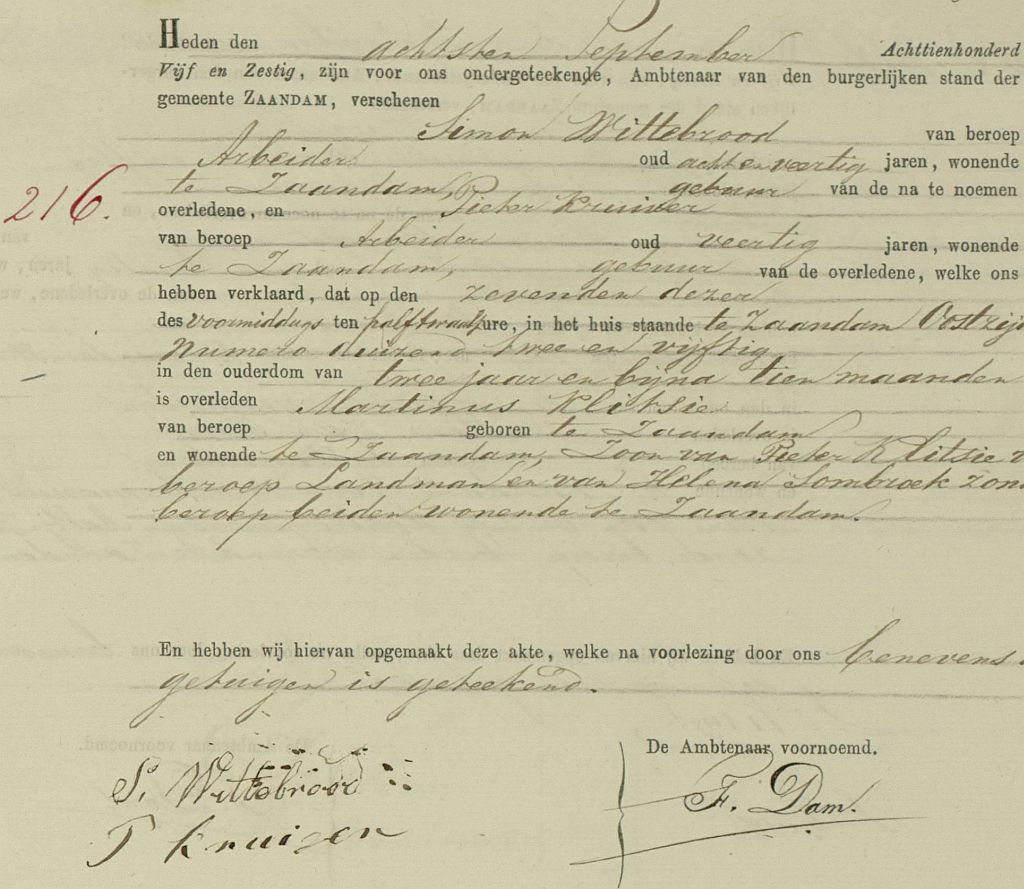 Heden den achtsten September Achttienhonderd
Vijf en Zestig, zijn voor ons ondergeteekende, Ambtenaar van den burgerlijken stand der
gemeente ZAANDAM, verschenen
Simon Wittebrood van beroep
Arbeider oud acht en veertig jaren, wonende
te Zaandam, gebuur van de na te noemen
216.
overledene, en Pieter Kruiver
van beroep Arbeider oud veertig jaren, wonende
te Zaandam, gebuur van de overledene, welke ons
hebben verklaard, dat op den zevenden dezer
des voormiddags ten half twaalf ure, in het huis staande te Zaandam Oostzijde
numero duizend twee en vijftig
in den ouderdom van twee jaar en bijna tien maanden
is overleden Martinus Klitsie
van beroep geboren te Zaandam
en wonende te Zaandam, Zoon van Pieter Klitsie v
beroep Landman en van Helena Sombroek zon
beroep beiden wonende te Zaandam.
En hebben wij hiervan opgemaakt deze akte, welke na voorlezing door ons benevens
getuigen is geteekend.
De Ambtenaar voornoemd.
S. Wittebrood
F. Dam.
P Kruiver